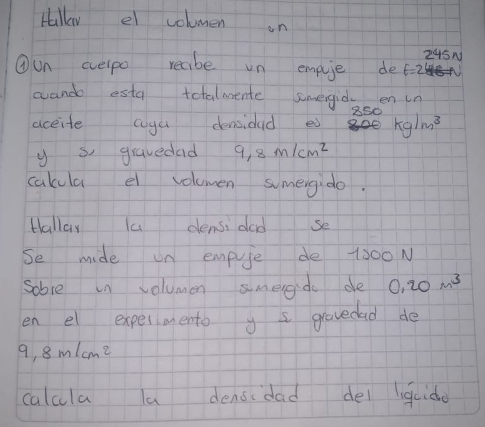 Hallar el volumen en
① Un cuerpo recibe un empuje de 245N
cuando esta totalmente sumergido en un
aceite cuya densidad es 850 kg/m³
y su gravedad 9,8 m/cm²
calcula el volumen sumergido.
Hallar la densidad se
Se mide un empuje de 1500 N
Sobre un volumen sumergido de 0,20 m³
en el experimento y s gravedad de
9,8 m/cm²
calcula la densidad del liquido